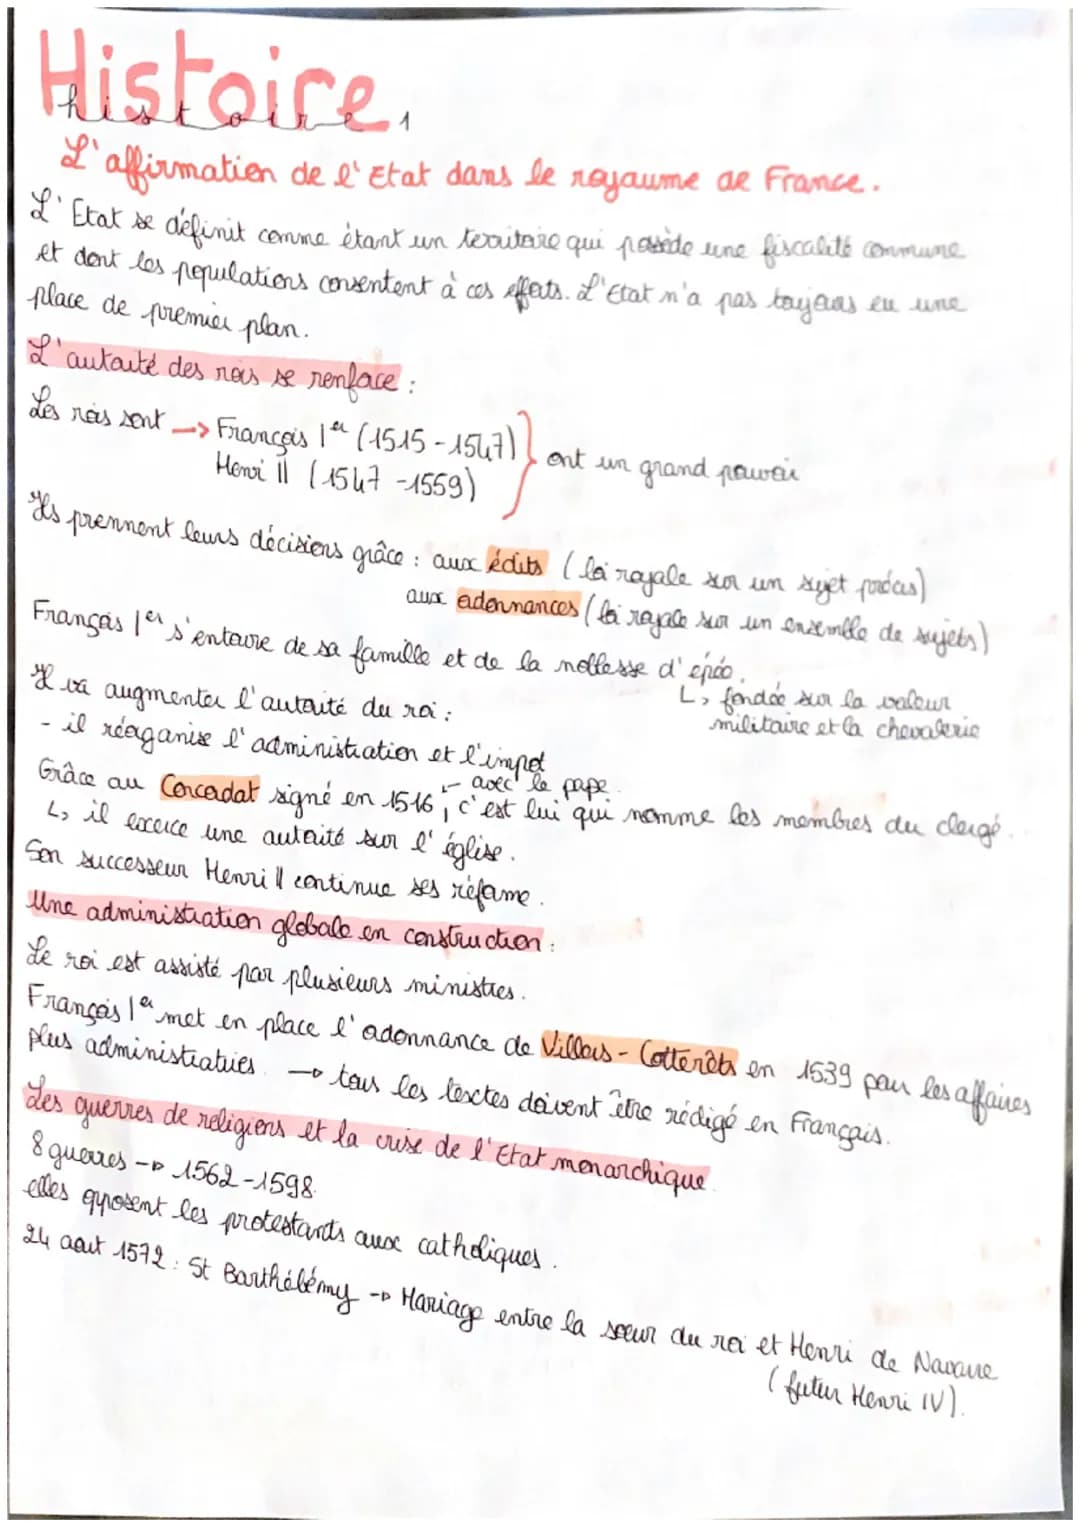 Histoire
histoire 1
L'affirmation de l'Etat dans le royaume de France.
L'Etat se définit comme étant un territoire qui possède une fiscalité commune
et dont les populations consentent à ces efforts. L'Etat n'a pas toujours eu une
place de premier plan.
L'autorité des rois se renforce :
Les rois sont → François 1er (1515-1547) } ont un grand pouvoir
Henri II (1547-1559)
Ils prennent leurs décisions grâce : aux édits (loi royale sur un sujet précis)
aux ordonnances (loi royale sur un ensemble de sujets)
François 1er s'entoure de sa famille et de la noblesse d'épée.
↳ fondée sur la valeur
militaire et la chevalerie
Il va augmenter l'autorité du roi :
- il réorganise l'administration et l'impot
← avec le pape.
Grâce au Concordat signé en 1516, c'est lui qui nomme les membres du clergé.
↳ il exerce une autorité sur l'église.
Son successeur Henri II continue ses réforme.
Une administration globale en construction :
Le roi est assisté par plusieurs ministres.
François 1er met en place l'ordonnance de Villers-Cotterêts en 1539 pour les affaires
plus administratives. → tous les textes doivent être rédigé en Français.
Les guerres de religions et la crise de l'Etat monarchique.
8 guerres → 1562-1598.
elles opposent les protestants aux catholiques.
24 aout 1572 : St Barthélémy → Mariage entre la soeur du roi et Henri de Navarre
(futur Henri IV).